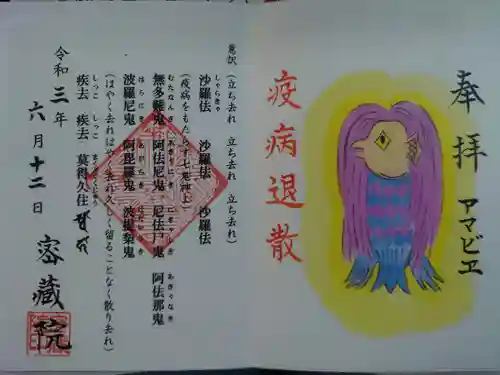 奉拝
アマビヱ
疫病退散
意訳(立ち去れ 立ち去れ 立ち去れ)
沙羅佉 沙羅佉 沙羅佉
(疫病をもたらす七鬼神よ)
無多難鬼 阿佉尼鬼 尼佉尸鬼 阿佉那鬼
波羅尼鬼 阿毘羅鬼 波提梨鬼
(はやく去れはやく去れ久しく留ることなく散り去れ)
疾去 疾去 莫得久住
令和三年 六月十二日
密蔵院